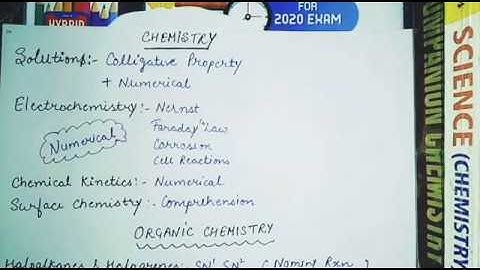 HYBRID
FOR
2020 EXAM
CHEMISTRY
Solutions:- Colligative Property
+ Numerical
Electrochemistry:- Nernst
Numerical
Faraday's Law
Corrosion
Cell Reactions
Chemical Kinetics:- Numerical
Surface Chemistry:- Comprehension
ORGANIC CHEMISTRY
Haloalkanes & Haloarenes:- SN1 SN2 (Naming Rxn)
SCIENCE (CHEMISTRY
COMPANION CHEMIST